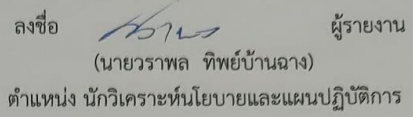 ลงชื่อ ผู้รายงาน
(นายวราพล ทิพย์บ้านฉาง)
ตำแหน่ง นักวิเคราะห์นโยบายและแผนปฏิบัติการ